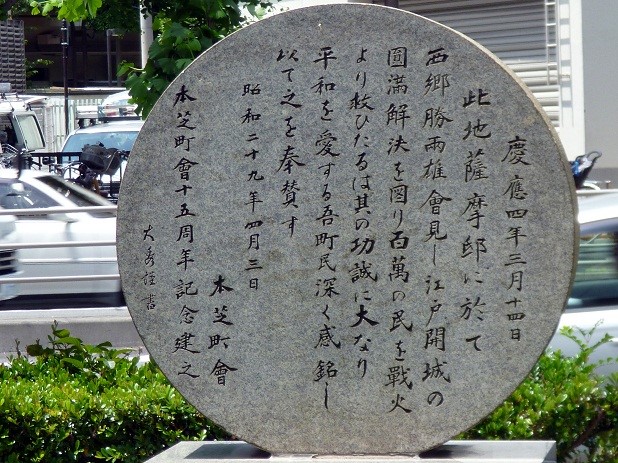 慶應四年三月十四日
此地薩摩邸に於て
西郷勝両雄會見し江戸開城の
圓満解決を図り百萬の民を戰火
より救ひたるは其の功誠に大なり
平和を愛する吾町民深く感銘し
以て之を奉賛す
昭和二十九年四月三日
本芝町會
本芝町會十五周年記念建之